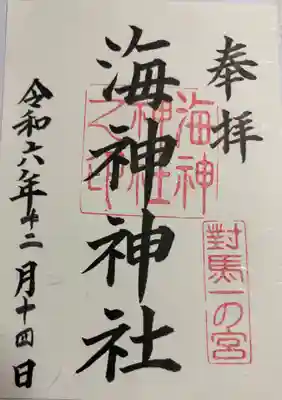 奉拝
對馬一の宮
海神神社
海神神社之印
令和六年十二月十四日